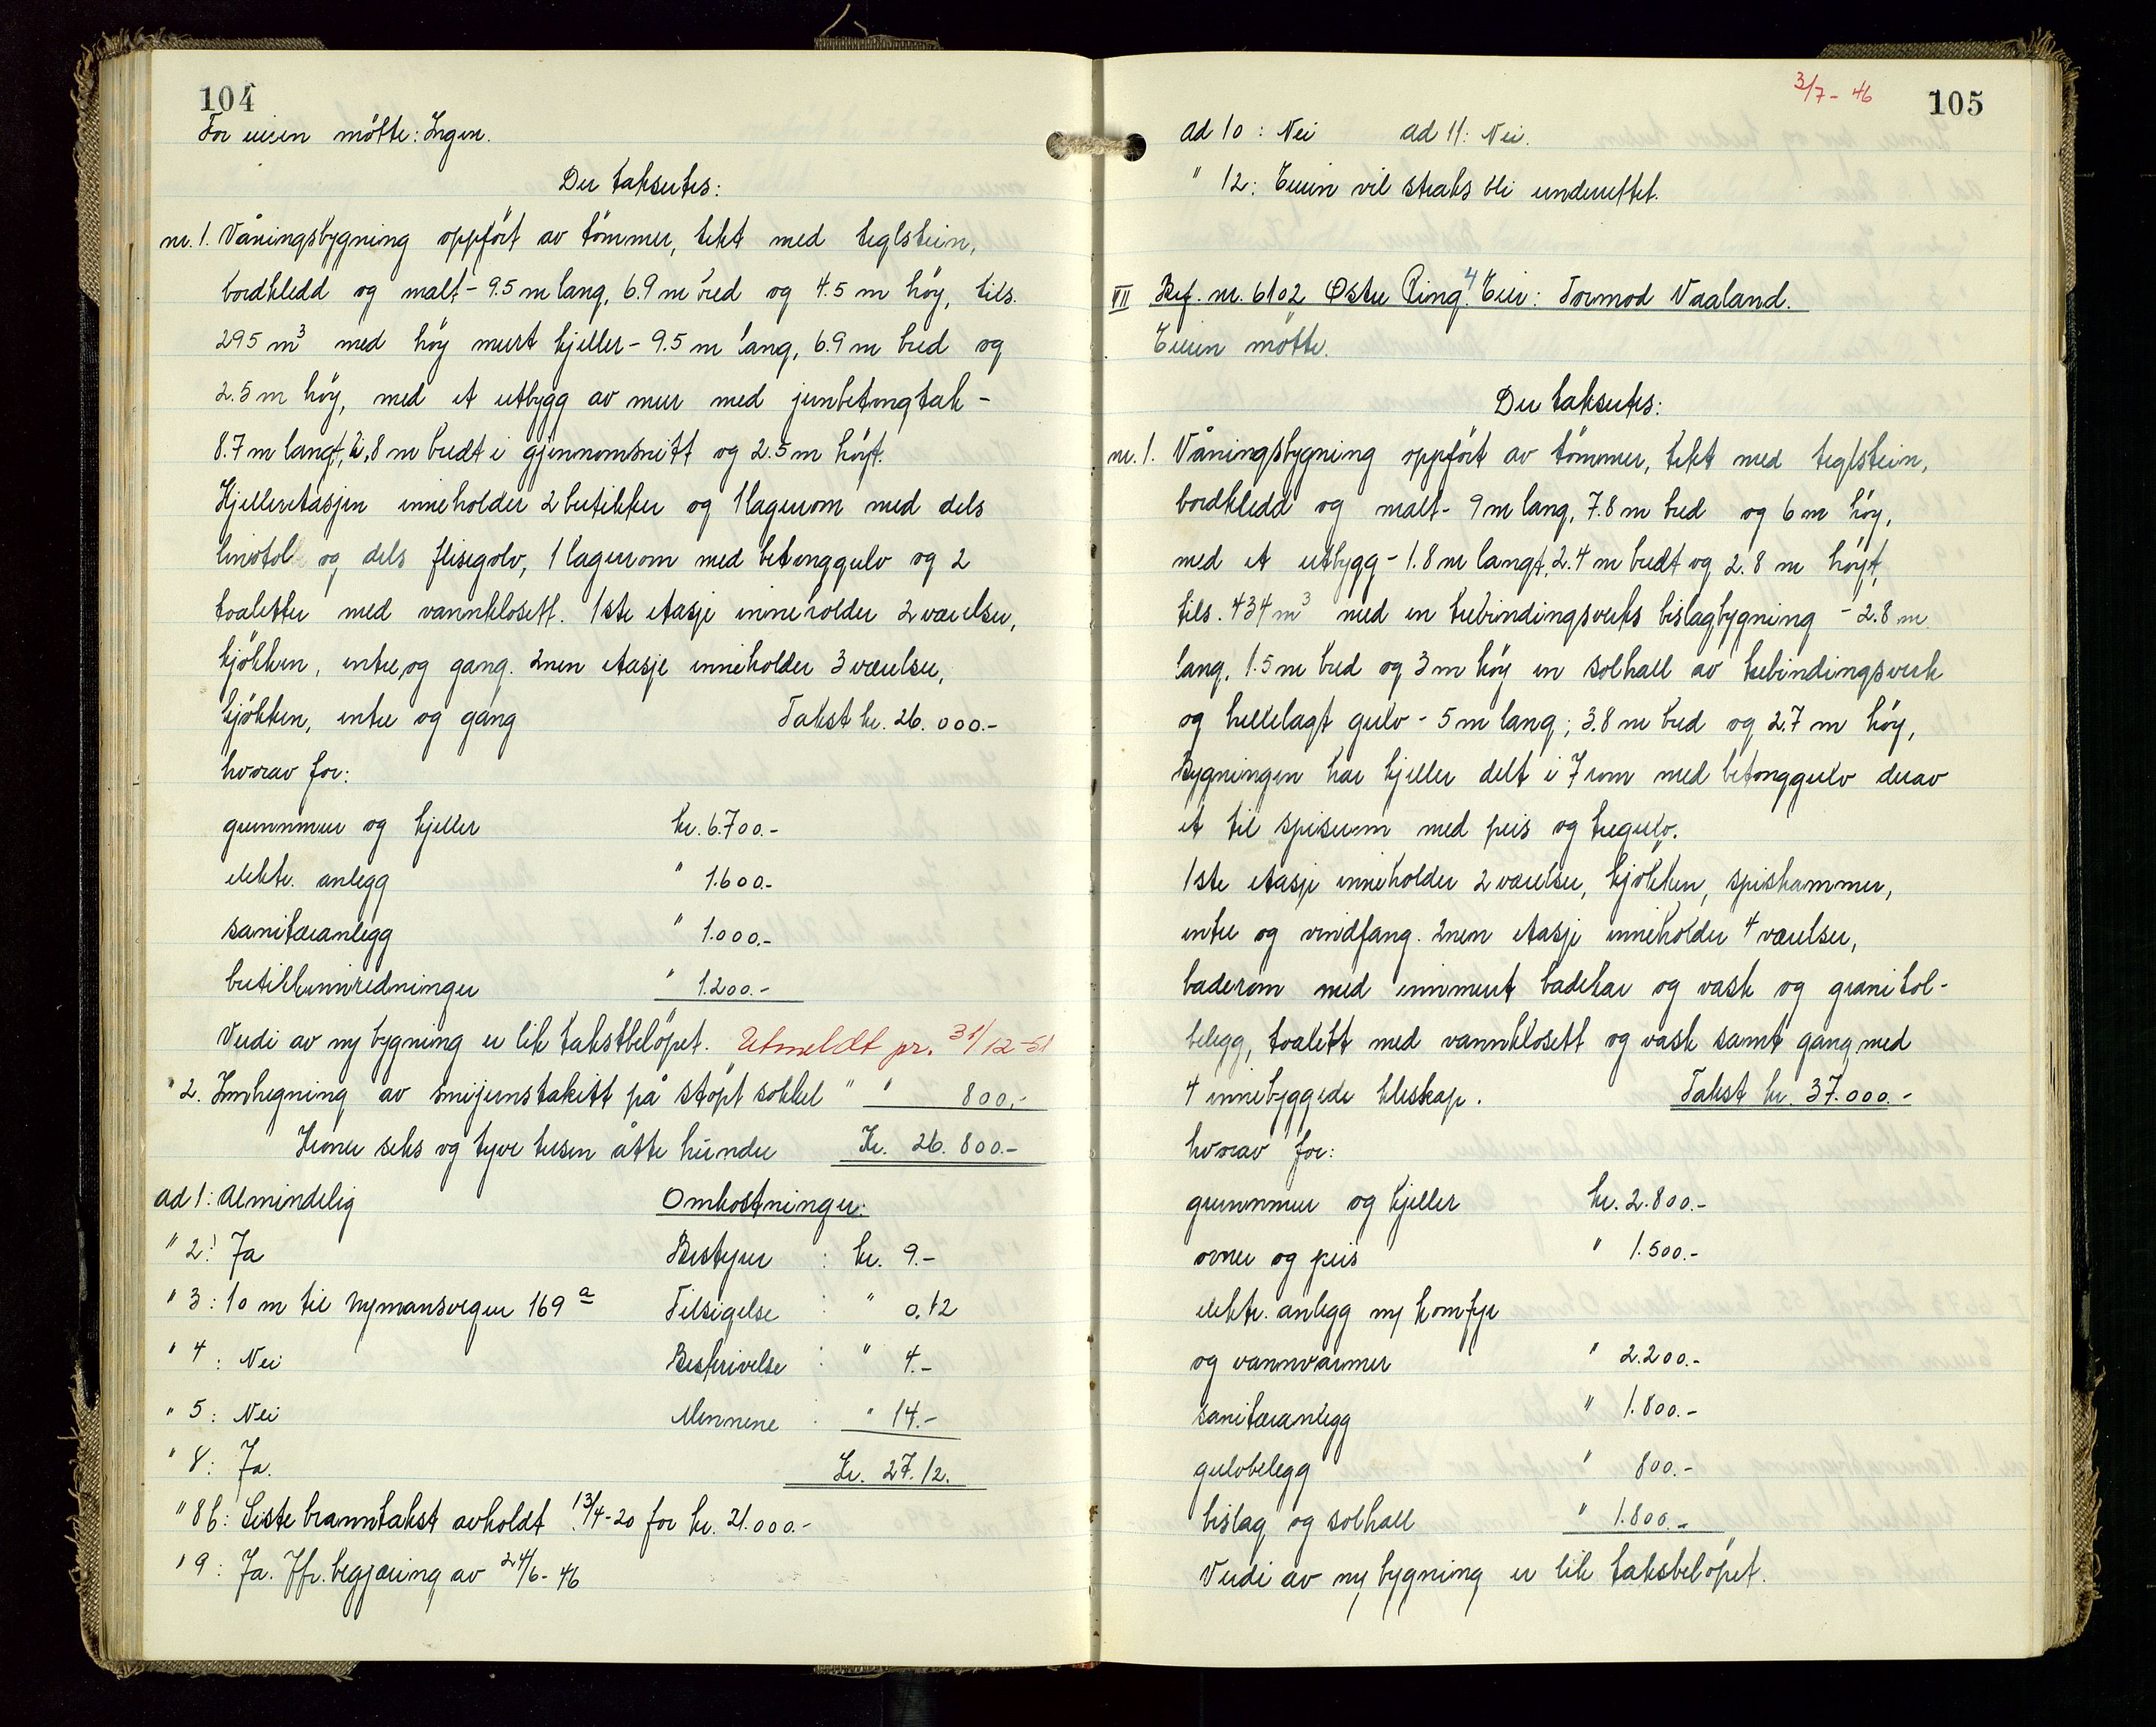 104
For eieren mötte: Ingen.
Der takseres:
nr. 1. Våningsbygning oppfört av tömmer, tekt med teglstein,
bordkledd og malt - 9.5 m lang, 6.9 m bred og 4.5 m höy, tils.
295 m³ med höy murt kjeller - 9.5 m lang, 6.9 m bred og
2.5 m höy, med et utbygg av mur med jernbetongtak -
8.7 m langt, 2.8 m bredt i gjennomsnitt og 2.5 m höyt.
Kjelleretasjen inneholder 2 butikker og 1 lagerrom med dels
linotol og dels flisegolv, 1 lagerrom med betonggulv og 2
toaletter med vannklosett. 1ste etasje inneholder 2 værelser,
kjökken, entre, og gang. 2nen etasje inneholder 3 værelser,
kjökken, entre og gang Takst kr. 26.000.-
hvorav for:
grunnmur og kjeller kr. 6.700.-
elektr. anlegg " 1.600.-
sanitæranlegg " 1.000.-
butikkinnredninger " 1.200.-
Verdi av ny bygning er lik takstbelöpet. Utmeldt pr. 31/12-51
" 2. Innhegning av smijernstakitt på stöpt sokkel " " 800.-
Kroner seks og tyve tusen åtte hundre Kr. 26.800.-
ad 1: Almindelig Omkostninger:
" 2: Ja Bestyrer : kr. 9.-
" 3: 10 m til Nymansveger 169 a Tilsigelse : " 0.12
" 4: Nei Beskrivelse : " 4.-
" 5: Nei Mennene : " 14.-
" 8: Ja. Kr. 27.12.
" 8b: Siste branntakst avholdt 13/4-20 for kr. 21.000.-
" 9: Ja. Jfr. begjæring av 24/6-46
3/7-46 105
ad 10: Nei ad 11: Nei.
" 12: Eieren vil straks bli underrettet.
VII Bef. nr. 6102 Østre Ring 4. Eier: Tormod Vaaland.
Eieren mötte.
Der takseres:
nr. 1. Våningsbygning oppfört av tömmer, tekt med teglstein,
bordkledd og malt - 9 m lang, 7.8 m bred og 6 m höy,
med et utbygg - 1.8 m langt, 2.4 m bredt og 2.8 m höyt,
tils. 434 m³ med en trebindingsverks bislagbygning - 2.8 m
lang, 1.5 m bred og 3 m höy en solhall av trebindingsverk
og hellelagt gulv - 5 m lang, 3.8 m bred og 2.7 m höy,
Bygningen har kjeller delt i 7 rom med betonggulv derav
et til spiserom med peis og tregulv.
1ste etasje inneholder 2 værelser, kjökken, spiskammer,
entre og vindfang. 2nen etasje inneholder 4 værelser,
baderom med innmurt badekar og vask og granitol-
belegg, toalett med vannklosett og vask samt gang med
4 innebyggede kleskap. Takst kr. 37.000.-
hvorav for:
grunnmur og kjeller kr. 2.800.-
ovner og peis " 1.500.-
elektr. anlegg m/ komfyr
og vannvarmer " 2.200.-
sanitæranlegg " 1.800.-
gulvbelegg " 800.-
bislag og solhall " 1.800.-
Verdi av ny bygning er lik taksbelöpet.